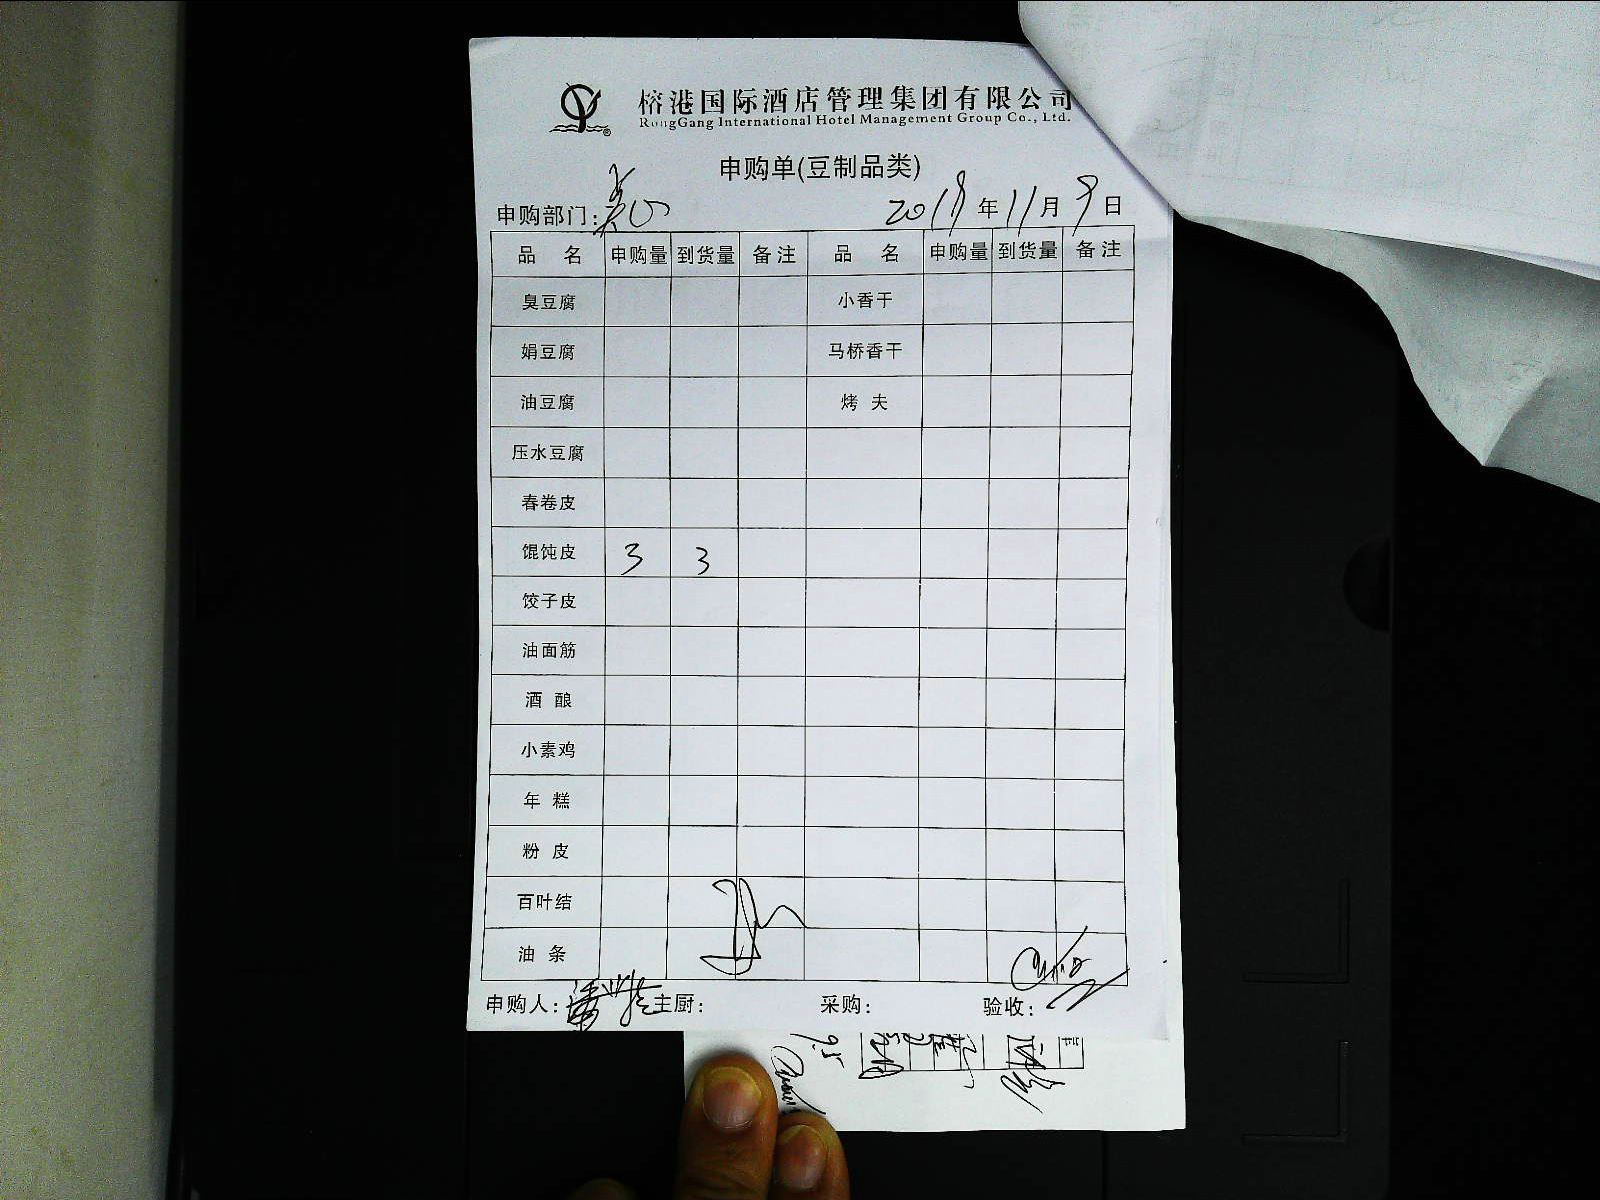 榕港国际酒店管理集团有限公司
RongGang International Hotel Management Group Co., Ltd.
申购单(豆制品类)
申购部门: 2018年11月9日
品 名 申购量 到货量 备注 品 名 申购量 到货量 备注
臭豆腐 小香干
娟豆腐 马桥香干
油豆腐 烤 夫
压水豆腐
春卷皮
馄饨皮 3 3
饺子皮
油面筋
酒 酿
小素鸡
年 糕
粉 皮
百叶结
油 条
申购人: 主厨: 采购: 验收:
9.5